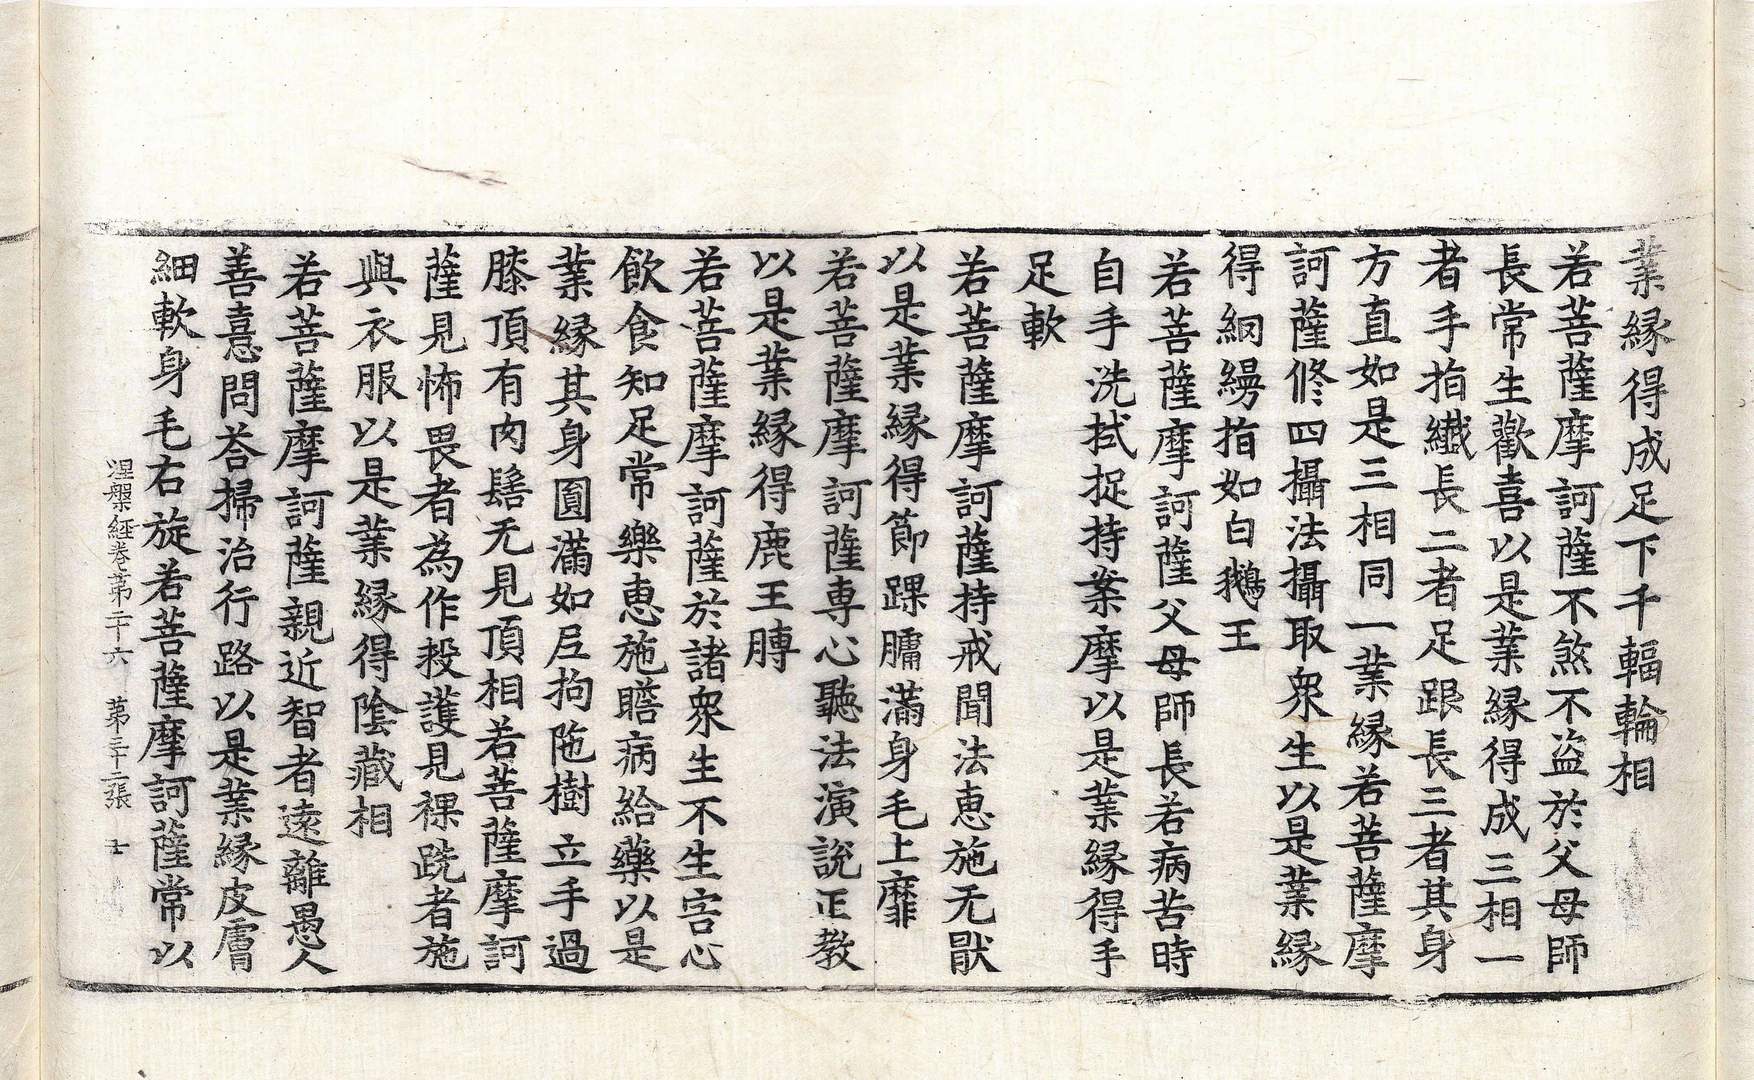 業縁得成足下千輻輪相
若菩薩摩訶薩不煞不盗於父母師
長常生歡喜以是業縁得成三相一
者手指纖長二者足跟長三者其身
方直如是三相同一業縁若菩薩摩
訶薩修四攝法攝取衆生以是業縁
得網縵指如白鵝王
若菩薩摩訶薩父母師長若病苦時
自手洗拭捉持案摩以是業縁得手
足軟
若菩薩摩訶薩持戒聞法恵施无猒
以是業縁得節踝𦟛滿身毛上靡
若菩薩摩訶薩専心聽法演説正教
以是業縁得鹿王膞
若菩薩摩訶薩於諸衆生不生害心
飲食知足常樂恵施瞻病給藥以是
業縁其身圓滿如尼拘陁樹立手過
膝頂有肉髻无見頂相若菩薩摩訶
薩見怖畏者為作救護見裸跣者施
與衣服以是業縁得陰藏相
若菩薩摩訶薩親近智者遠離愚人
善憙問荅掃治行路以是業縁皮膚
細軟身毛右旋若菩薩摩訶薩常以
涅槃經卷第二十六 第三十二張